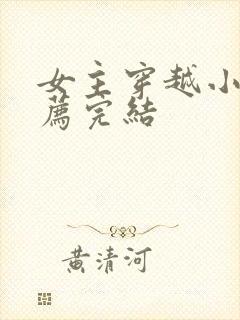 女主穿越小
薦完結
黃清河